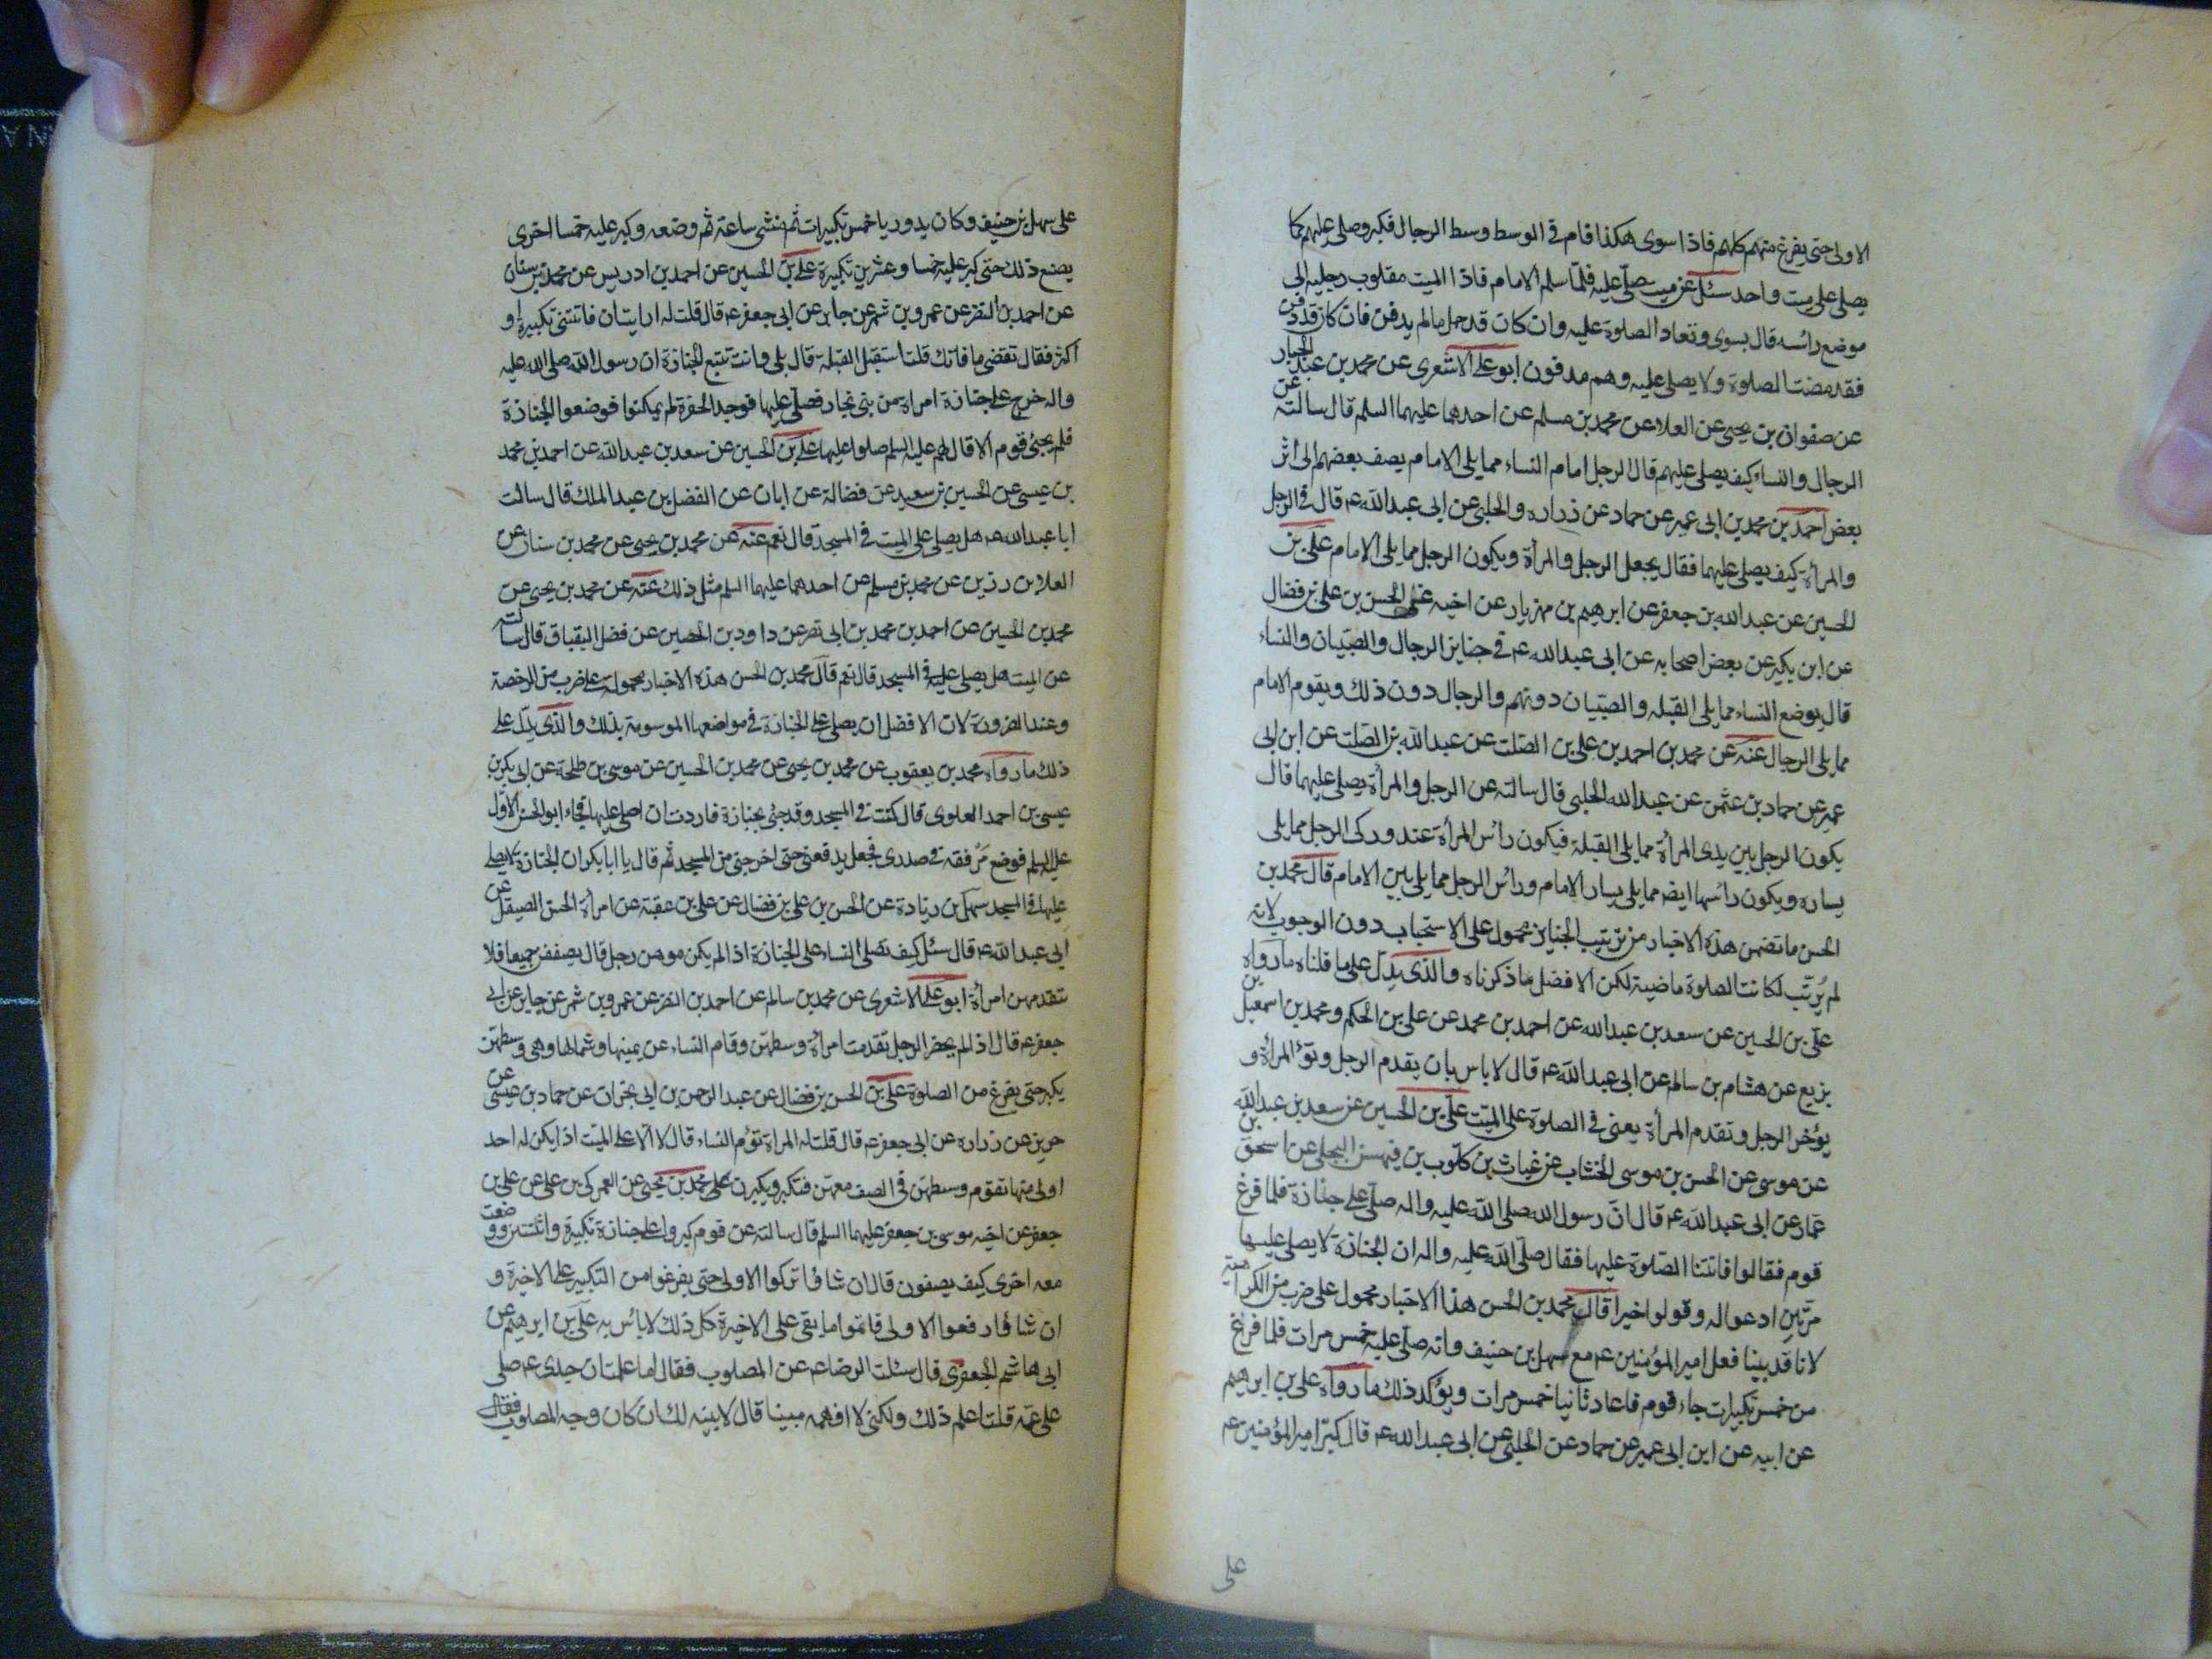 الاولى حتى يفرغ منهم كلهم فاذا سوى هكذا قام فى الوسط وسط الرجال فكبر وصلى عليهم كما
يصلى على ميت واحد سئل عن ميت صلى عليه فلما سلم الامام فاذا الميت مقلوب رجليه الى
موضع رائسه قال يسوى وتعاد الصلوة عليه وان كان قد حمل مالم يدفن فان كان قد دفن
فقد مضت الصلوة ولا يصلى عليه وهم مدفون ابو على الاشعرى عن محمد بن عبد الجبار
عن صفوان بن يحيى عن العلاء عن محمد بن مسلم عن احدهما عليهما السلم قال سالته عن
الرجال والنساء كيف يصلى عليهم قال الرجل امام النساء مما يلى الامام يصف بعضهم الى اثر
بعض احمد بن محمد بن ابى عمير عن حماد عن زراره والحلبى عن ابى عبدالله ع قال فى الرجل
والمرأة كيف يصلى عليهما فقال يجعل الرجل والمرأة ويكون الرجل مما يلى الامام على بن
الحسين عن عبدالله بن جعفر عن ابرهيم بن مهزيار عن اخيه على الحسن بن على بن فضال
عن ابن بكير عن بعض اصحابه عن ابى عبدالله ع فى جنايز الرجال والصبيان والنساء
قال يوضع النساء مما يلى القبله والصبيان دونهم والرجال دون ذلك ويقوم الامام
مما يلى الرجال عنه عن محمد بن احمد بن على بن الصلت عن عبدالله بن الصلت عن ابن ابى
عمير عن حماد بن عثمن عن عبدالله الحلبى قال سالته عن الرجل والمرأة يصلى عليهما قال
يكون الرجل بين يدى المرأة مما يلى القبلة فيكون رأس المرأة عند وركى الرجل مما يلى
يساره ويكون رائسها ايضا مما يلى يسار الامام ورائس الرجل مما يلى يمين الامام قال محمد بن
الحسن ما تضمن هذه الاخبار من ترتيب الجنايز محمول على الاستحباب دون الوجوب لانه
لم يرتب لكانت الصلوة ماضية لكن الافضل ما ذكرناه والذى يدل على ما قلناه ما رواه
على بن الحسين عن سعد بن عبدالله عن احمد بن محمد عن على بن الحكم ومحمد بن اسمعيل بن
بزيع عن هشام بن سالم عن ابى عبدالله ع قال لا باس بان يقدم الرجل وتؤ المرأة و
يؤخر الرجل وتقدم المرأة يعنى فى الصلوة على الميت على بن الحسين عن سعد بن عبدالله
عن موسى عن الحسن بن موسى الخشاب عن غياث بن كلوب بن فيهس البجلى عن اسحق بن
عمار عن ابى عبدالله ع قال ان رسول الله صلى الله عليه واله صلى على جنازة فلما فرغ
قوم فقالوا فاتتنا الصلوة عليها فقال صلى الله عليه واله ان الجنازة لا يصلى عليها
مرتين ادعوا له وقولوا خيرا قال محمد بن الحسن هذا الاخبار محمول على ضرب من الكراهية
لانا قد بينا فعل امير المؤمنين ع مع سهل بن حنيف وانه صلى عليه خمس مرات فلما فرغ
من خمس تكبيرات جاء قوم فاعاد ثانيا خمس مرات ويؤكد ذلك ما رواه على بن ابرهيم
عن ابيه عن ابن ابى عمير عن حماد عن الحلبى عن ابى عبدالله ع قال كبر امير المؤمنين ع
على
على سهل بن حنيف وكان بدوريا خمس تكبيرات ثم مشى ساعة ثم وضعه وكبر عليه خمسا اخرى
يصنع ذلك حتى كبر عليه خمسا وعشرين تكبيرة على بن الحسين عن احمد بن ادريس عن محمد بن سنان
عن احمد بن النضر عن عمرو بن شمر عن جابر عن ابى جعفر ع قال قلت له ارايت ان فاتتنى تكبيرة او
اكثر فقال تقضى ما فاتك قلت استقبل القبلة قال بلى وانت تتبع الجنازة ان رسول الله صلى الله عليه
واله خرج على جنازة امراة من بنى نجار فصلى عليها فوجد الحفرة لم يمكنوا فوضعوا الجنازة
فلم يجئ قوم الا قال لهم عليه السلم صلوا عليها على بن الحسين عن سعد بن عبدالله عن احمد بن محمد
بن عيسى عن الحسين بن سعيد عن فضالة عن ابان عن الفضل بن عبدالملك قال سالت
ابا عبدالله ع هل يصلى على الميت فى المسجد قال نعم عنه عن محمد بن يحيى عن محمد بن سنان عن
العلا بن رزين عن محمد بن مسلم عن احدهما عليهما السلم مثل ذلك عنه عن محمد بن يحيى عن
محمد بن الحسين عن احمد بن محمد بن ابى نصر عن داود بن الحصين عن فضل البقباق قال سالته
عن الميت هل يصلى عليه فى المسجد قال نعم قال محمد بن الحسن هذه الاخبار محمولة على ضرب من الرخصة
وعند الضرورة لان الافضل ان يصلى على الجنازة فى مواضعها الموسومة بذلك والذى يدل على
ذلك ما رواه محمد بن يعقوب عن محمد بن يحيى عن محمد بن الحسين عن موسى بن طلحة عن ابى بكر بن
عيسى بن احمد العلوى قال كنت فى المسجد وقد جئ بجنازة فاردت ان اصلى عليها فجاء ابو الحسن الاول
عليه السلم فوضع مرفقه فى صدرى فجعل يدفعنى حتى اخرجنى من المسجد ثم قال يا ابا بكر ان الجنازة لا يصلى
عليها فى المسجد سهل بن زيادة عن الحسن بن على بن فضال عن على بن عقبة عن امرأة الحسن الصيقل عن
ابى عبدالله ع قال سئل كيف تصلى النساء على الجنازة اذا لم يكن معهن رجل قال يصففن جميعا فلا
تتقدمهن امرأة ابو على الاشعرى عن محمد بن سالم عن احمد بن النضر عن عمرو بن شمر عن جابر عن ابى
جعفر ع قال اذا لم يحضر الرجل تقدمت امرأة وسطهن وقام النساء عن يمينها وشمالها وهى وسطهن
يكبر حتى يفرغ من الصلوة على بن الحسن بن فضال عن عبد الرحمن بن ابى نجران عن حماد بن عيسى عن
حريز عن زراره عن ابى جعفر ع قال قلت له المراة تؤم النساء قال لا الا على الميت اذا يكن له احد
اولى منها تقوم وسطهن فى الصف معهن فتكبر ويكبرن على محمد بن يحيى عن العمركى بن على عن على بن
جعفر عن اخيه موسى بن جعفر عليهما السلم قال سالته عن قوم كبروا على جنازة تكبيرة واثنتين ووضعت
معه اخرى كيف يصفون قال ان شاؤا تركوا الاولى حتى يفرغوا من التكبير على الاخيرة و
ان شاؤا رفعوا الاولى فاتموا ما بقى على الاخيرة كل ذلك لا بأس به على بن ابرهيم عن
ابى هاشم الجعفرى قال سئلت الرضا ع عن المصلوب فقال اما علمت ان جدى ع صلى
على عمه قلت اعلم ذلك ولكنى لا افهمه مبينا قال لابينه لك ان كان وجه المصلوب فقال